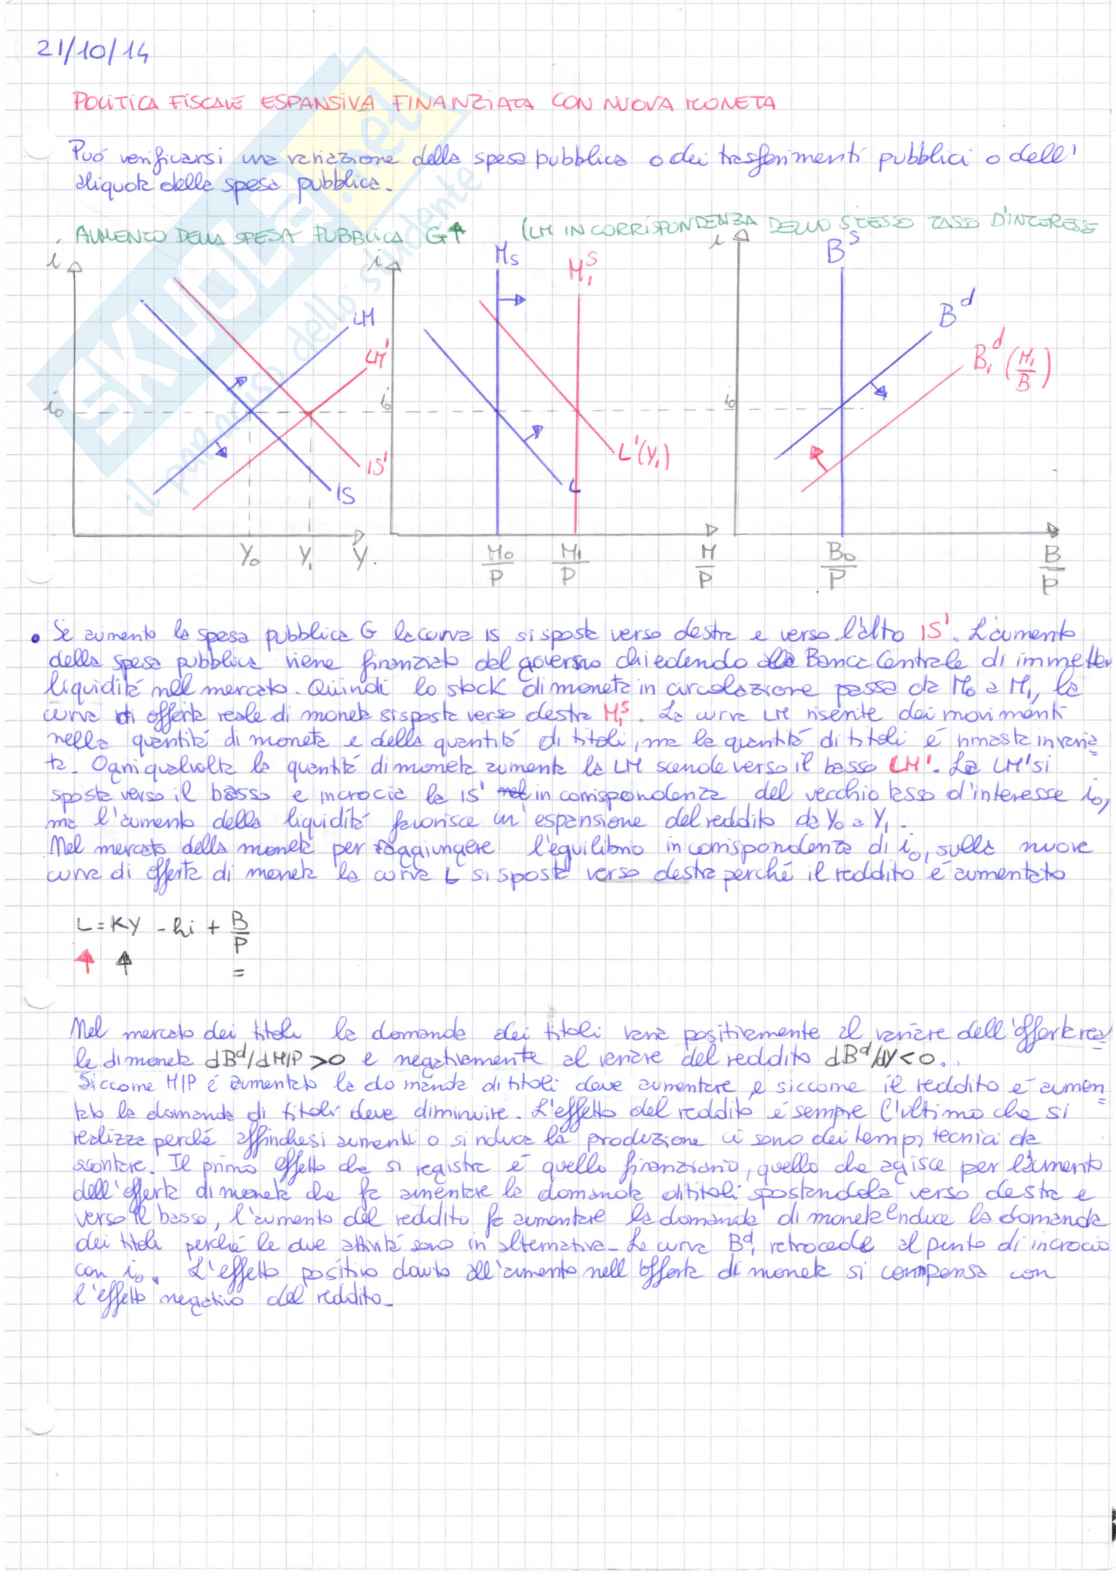 21/10/14
POLITICA FISCALE ESPANSIVA FINANZIATA CON NUOVA MONETA
Può verificarsi una variazione della spesa pubblica o dei trasferimenti pubblici o dell'
aliquota della spesa pubblica.
AUMENTO DELLA SPESA PUBBLICA G↑ (LM IN CORRISPONDENZA DELLO STESSO TASSO D'INTERESSE
i i i
Ms M₁ˢ Bˢ
LM Bᵈ
LM' B₁ᵈ (M₁/B)
i₀ i₀ i₀
IS' L'(Y₁)
IS L
Y₀ Y₁ Y. M₀/P M₁/P M/P B₀/P B/P
• Se aumenta la spesa pubblica G la curva IS si sposta verso destra e verso l'alto IS'. L'aumento
della spesa pubblica viene finanziato dal governo chiedendo alla Banca Centrale di immetter
liquidità nel mercato. Quindi lo stock di moneta in circolazione passa da M₀ a M₁, la
curva di offerta reale di moneta si sposta verso destra M₁ˢ. La curva LM risente dei movimenti
nella quantità di moneta e della quantità di titoli, ma la quantità di titoli è rimasta invaria=
ta. Ogni qualvolta la quantità di moneta aumenta la LM scende verso il basso LM'. La LM' si
sposta verso il basso e incrocia la IS' in corrispondenza del vecchio tasso d'interesse i₀,
ma l'aumento della liquidità favorisce un'espansione del reddito da Y₀ a Y₁.
Nel mercato della moneta per raggiungere l'equilibrio in corrispondenza di i₀, sulla nuova
curva di offerta di moneta la curva L si sposta verso destra perché il reddito è aumentato
L = KY - hi + B/P
↑ ↑ =
Nel mercato dei titoli la domanda dei titoli varia positivamente al variare dell'offerta rea=
le di moneta dBᵈ/dM/P >0 e negativamente al variare del reddito dBᵈ/dY<0.
Siccome M/P è aumentato la domanda di titoli deve aumentare e siccome il reddito è aumen=
tato la domanda di titoli deve diminuire. L'effetto del reddito è sempre l'ultimo che si
realizza perché affinche si aumenti o si riduca la produzione ci sono dei tempi tecnici da
scontare. Il primo effetto che si registra è quello finanziario, quello che agisce per l'aumento
dell'offerta di moneta che fa aumentare la domanda di titoli spostandola verso destra e
verso il basso, l'aumento del reddito fa aumentare la domanda di moneta e riduce la domanda
dei titoli perché le due attività sono in alternativa. La curva B₁ᵈ retrocede al punto di incrocio
con i₀. L'effetto positivo dovuto all'aumento nell'offerta di moneta si compensa con
l'effetto negativo del reddito.
SKUOLA.net
il paradiso dello studente